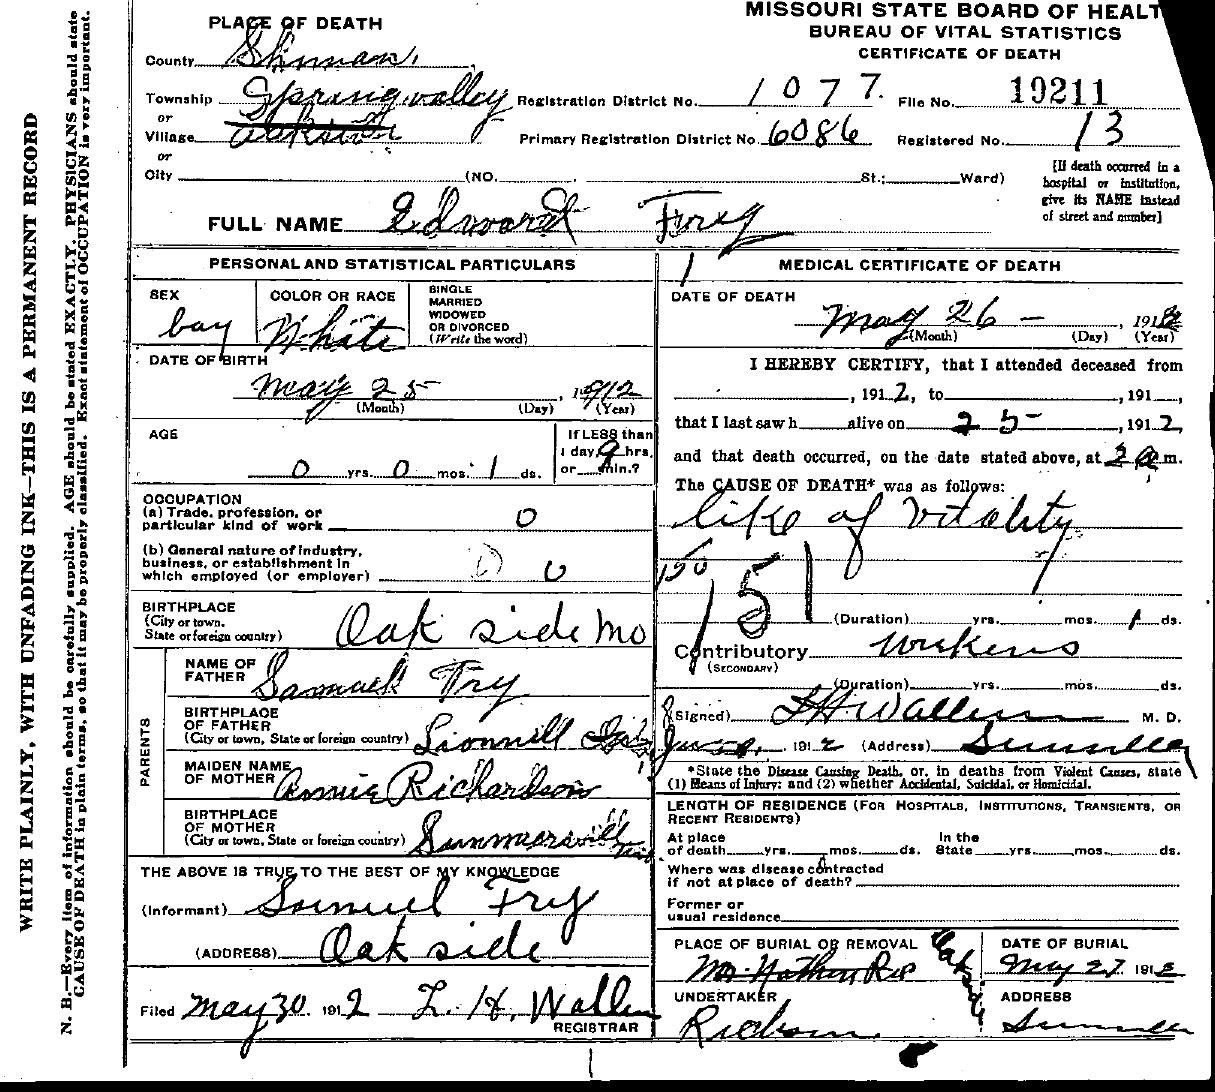 MISSOURI STATE BOARD OF HEALT
BUREAU OF VITAL STATISTICS
CERTIFICATE OF DEATH
PLACE OF DEATH
County Shnnan.
Township Spring valley Registration District No. 1077. File No. 19211
or
Village Primary Registration District No. 6086 Registered No. 13
or
City (NO. St.; Ward)
[If death occurred in a
hospital or institution,
give its NAME instead
of street and number]
FULL NAME Edward Fry
PERSONAL AND STATISTICAL PARTICULARS
SEX
boy
COLOR OR RACE
White
SINGLE
MARRIED
WIDOWED
OR DIVORCED
(Write the word)
DATE OF BIRTH
may 25, 1912
(Month) (Day) (Year)
AGE
0 yrs. 0 mos. 1 ds.
If LESS than
1 day, 9 hrs.
or min.?
OCCUPATION
(a) Trade, profession, or
particular kind of work 0
(b) General nature of industry,
business, or establishment in
which employed (or employer) 0
BIRTHPLACE
(City or town,
State or foreign country) Oak side Mo
PARENTS
NAME OF
FATHER Samuel Fry
BIRTHPLACE
OF FATHER
(City or town, State or foreign country) Lionnill
MAIDEN NAME
OF MOTHER Annie Richardson
BIRTHPLACE
OF MOTHER
(City or town, State or foreign country) Summersvill
THE ABOVE IS TRUE TO THE BEST OF MY KNOWLEDGE
(Informant) Samuel Fry
(ADDRESS) Oak side
Filed may 30, 1912 L. H. Wallen
REGISTRAR
MEDICAL CERTIFICATE OF DEATH
DATE OF DEATH
May 26 -, 1912
(Month) (Day) (Year)
I HEREBY CERTIFY, that I attended deceased from
, 1912, to , 191 ,
that I last saw h alive on 25-, 1912,
and that death occurred, on the date stated above, at 2 a m.
The CAUSE OF DEATH* was as follows:
like of vitality
150
151
(Duration) yrs. mos. 1 ds.
Contributory
(SECONDARY)
(Duration) yrs. mos. ds.
(Signed) L H Wallen M. D.
1912 (Address)
*State the Disease Causing Death, or, in deaths from Violent Causes, state
(1) Means of Injury; and (2) whether Accidental, Suicidal, or Homicidal.
LENGTH OF RESIDENCE (FOR HOSPITALS, INSTITUTIONS, TRANSIENTS, OR
RECENT RESIDENTS)
At place
of death yrs. mos. ds.
In the
State yrs. mos. ds.
Where was disease contracted
if not at place of death?
Former or
usual residence
PLACE OF BURIAL OR REMOVAL
DATE OF BURIAL
May 27, 1912
UNDERTAKER
ADDRESS
WRITE PLAINLY, WITH UNFADING INK—THIS IS A PERMANENT RECORD
N. B.—Every item of information should be carefully supplied. AGE should be stated EXACTLY. PHYSICIANS should state
CAUSE OF DEATH in plain terms, so that it may be properly classified. Exact statement of OCCUPATION is very important.